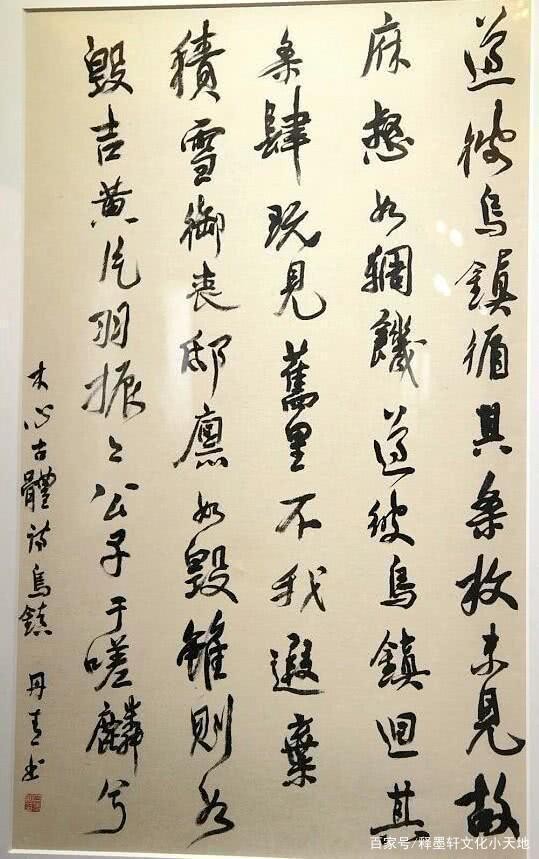 遵彼烏鎮循其条枚未見故
麻惄如輖饑遵彼烏鎮迴其
条肆既見舊里不我遐棄
積雪御喪邸廪如毀雖則如
毀吉黄片羽振々公子于嗟麟兮
木心古體詩烏鎮 丹青書
百家号/释墨轩文化小天地